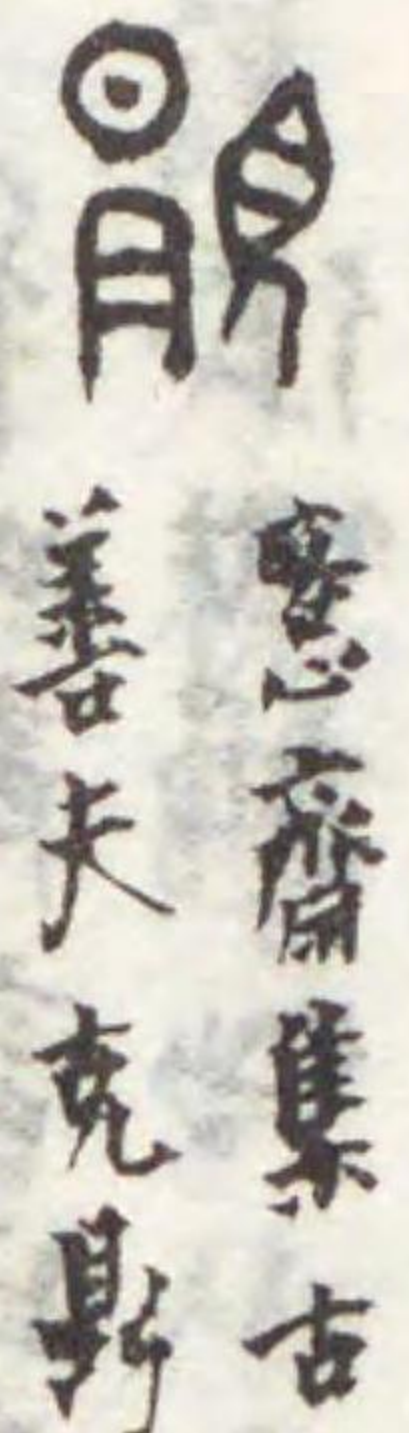 愙齋集古
善夫克鼎